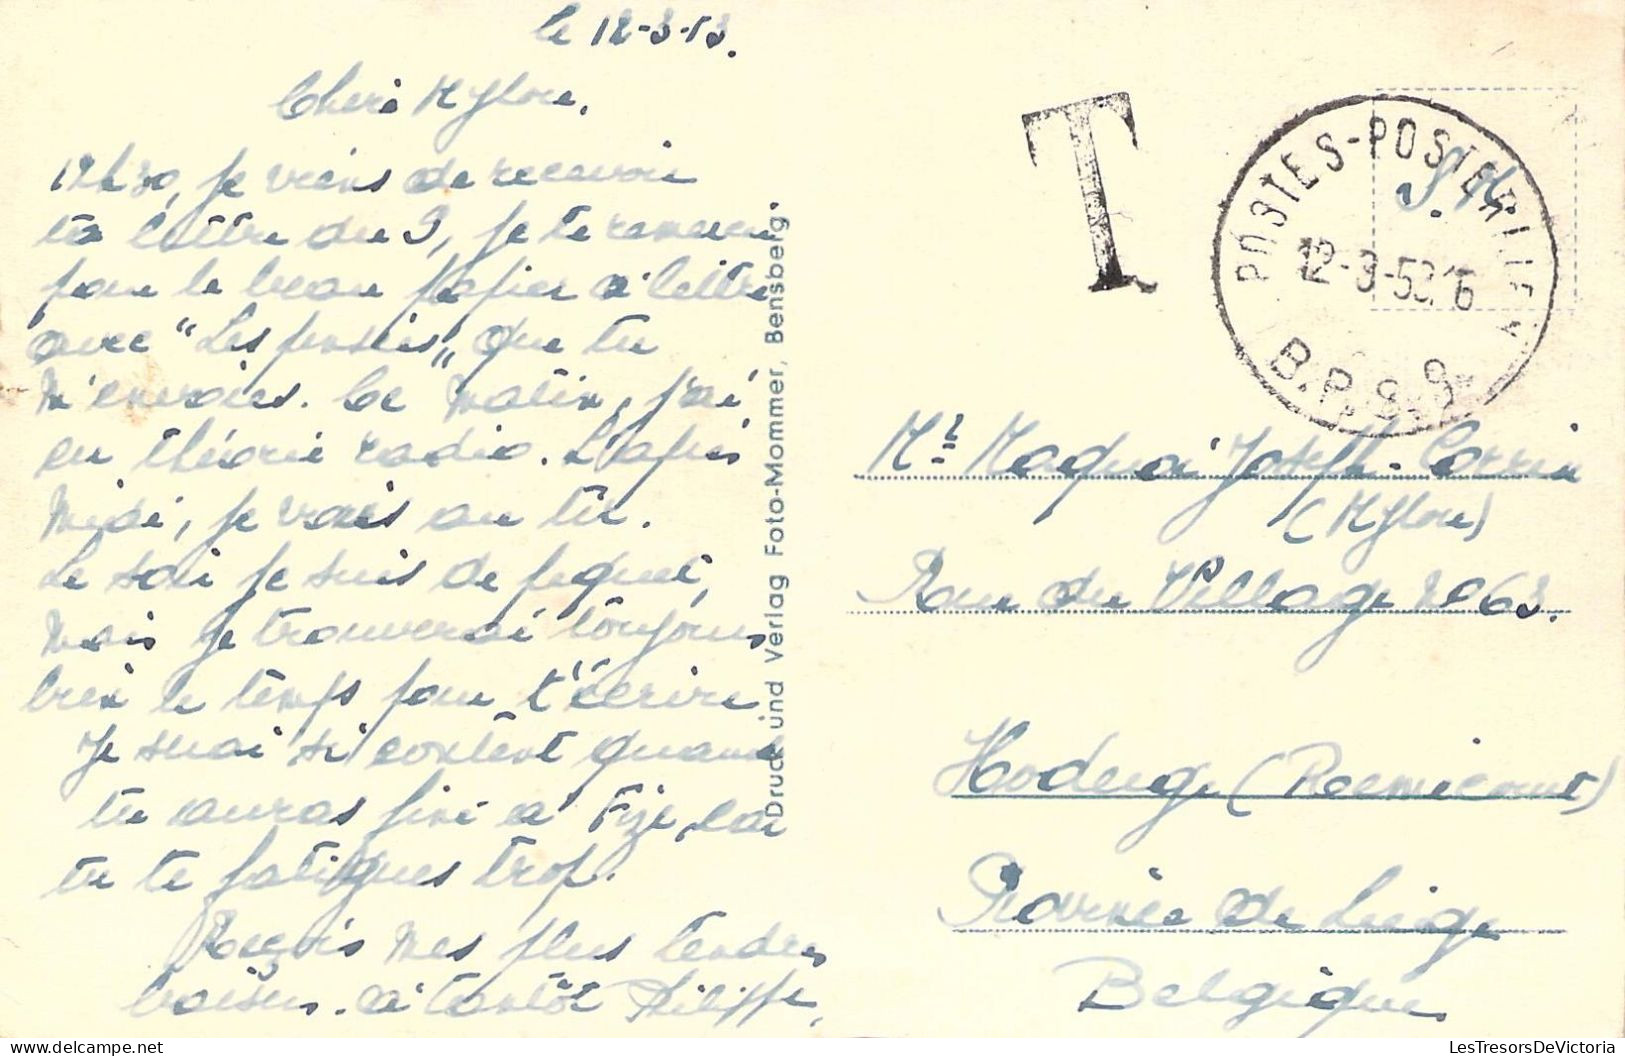 le 12-3-53.
Cheri Mylore,
12h30, je viens de recevoir
ta lettre du 9, je te remercie
pour le beau papier à lettre
avec "Les pensées" que tu
m'envoies. Ce matin, j'ai
eu théorie radio. L'après
midi, je vais au tir.
Le soir je suis de piquet,
mais je trouverai toujours
bien le temps pour t'écrire
Je serai si content quand
tu auras fini à Fize, car
tu te fatigues trop.
Reçois mes plus tendres
baisers. à tantôt Philippe,
Druck und Verlag Foto-Mommer, Bensberg
T
POSTES-POSTERIJEN
12-3-53 16
B.P.S 9
S.M.
Mr Maquoi Joseph-Corrin
(Mylore)
Rue du Village No 63.
Hodeige (Remicourt)
Province de Liège
Belgique
LesTresorsDeVictoria